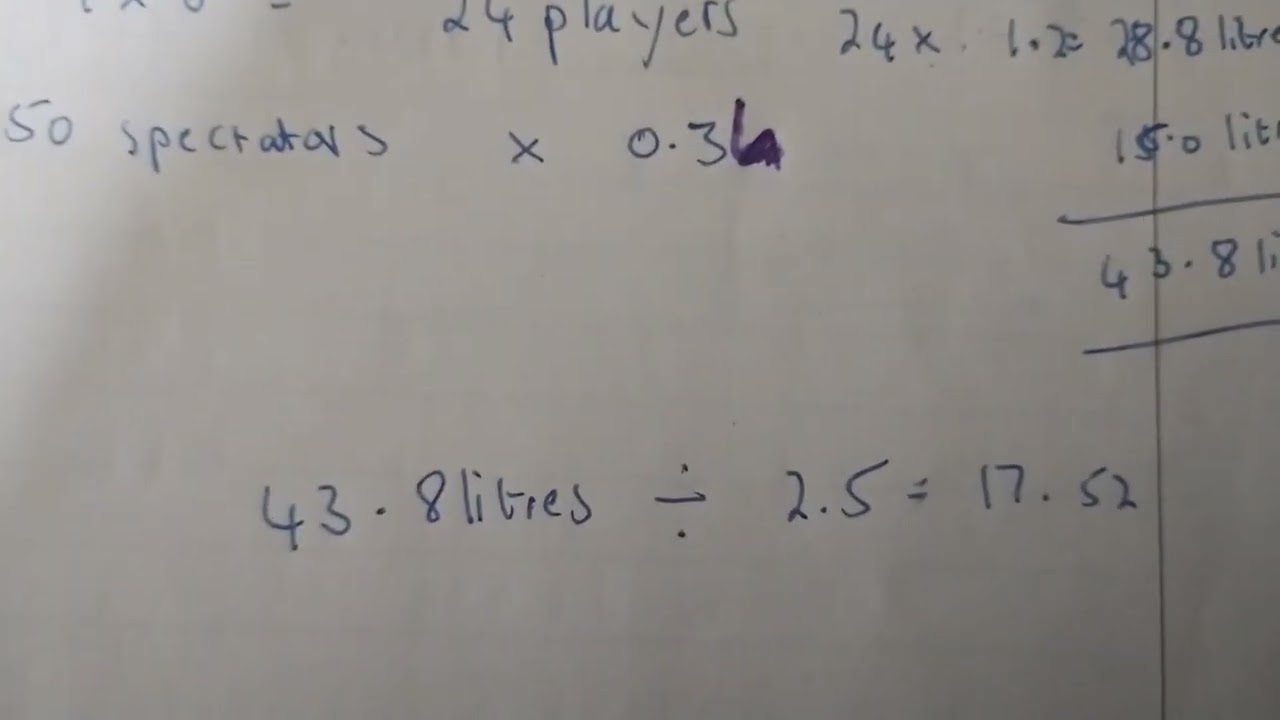 24 players 24 x 1.2= 28.8 litre
50 spectators x 0.3
15.0 lit
43.8 li
43.8 litres ÷ 2.5 = 17.52